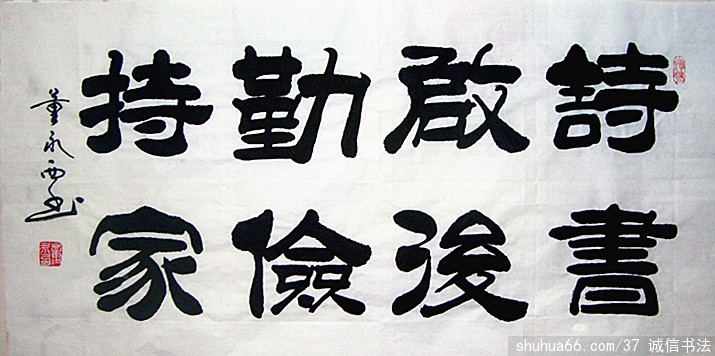 詩書
啟後
勤儉
持家
董永西书
shuhua66.com/37 诚信书法